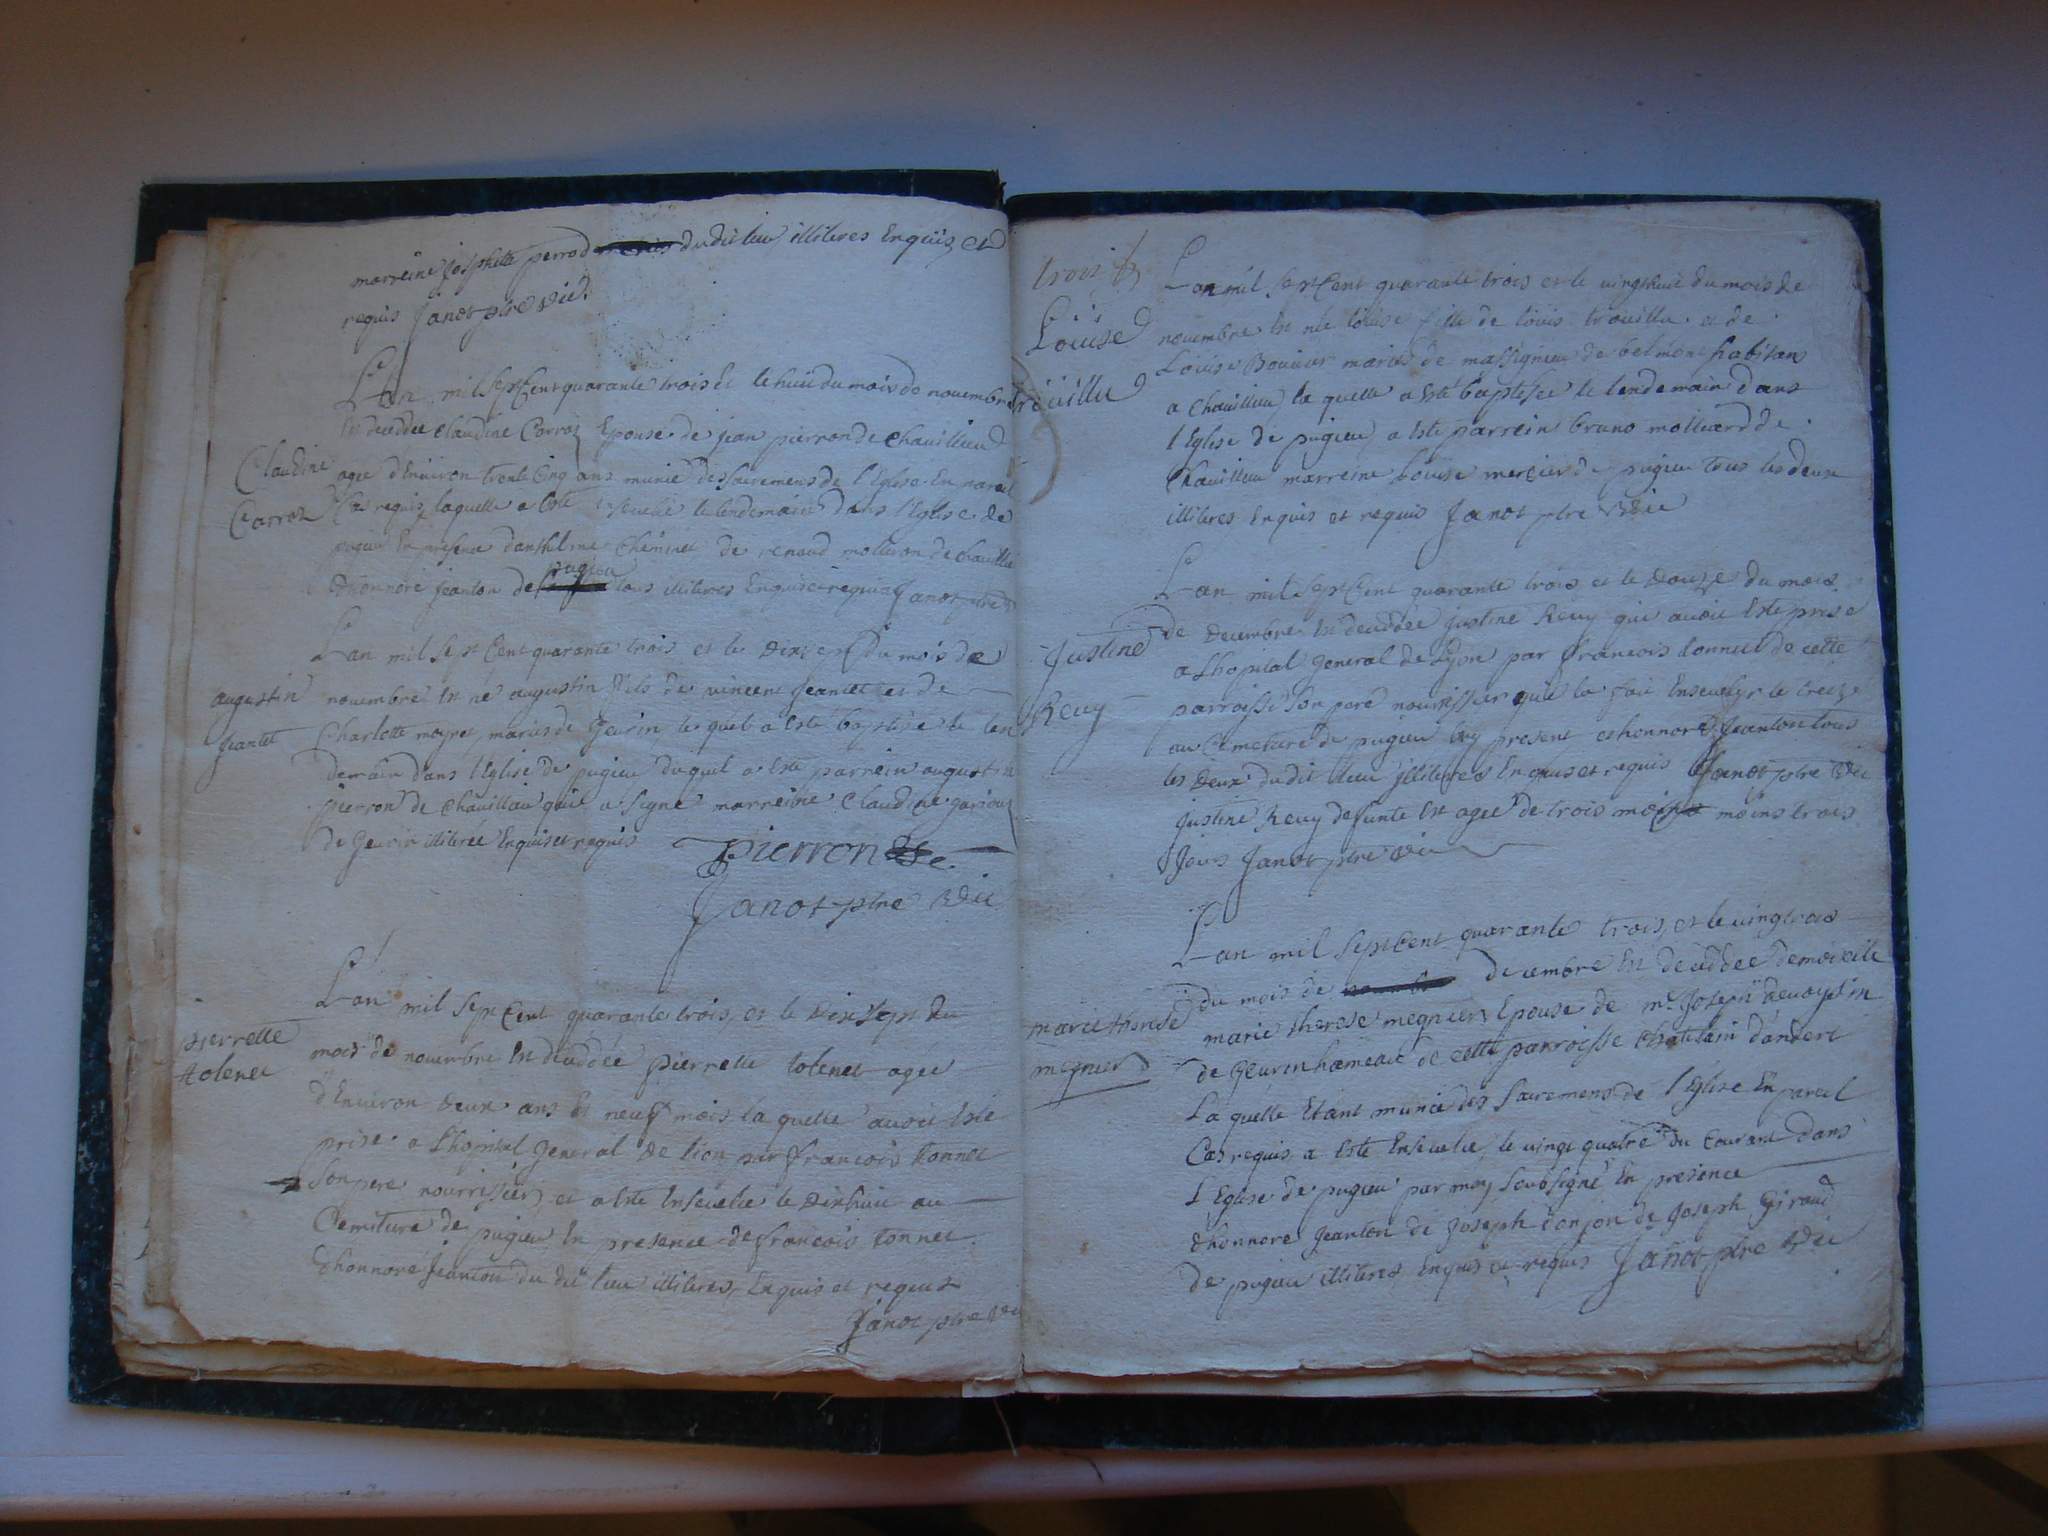 marreine Josphette perrod du dit lieu illiteres Enquis et
requis Janot ptre vic
L'an mil sept Cent quarante trois et le huit du mois de novembre
Est decedée Claudine Carraz Epouse de jean pierron de Chavillieu
Claudine
Carraz
agee d'Environ trente Cinq ans munie des sacremens de l'Eglise En pareil
Cas requis laquelle a este ensevelie le lendemain dans l'Eglise de
pugieu En presence de renaud de chavillieu
d'honnoré jeanton de pugieu tous illiteres Enquis et requis Janot ptre
L'an mil sept Cent quarante trois et le du mois de
augustin
jeantet
novembre est né augustin fils de vincent jeantet et de
Charlotte moyret mariés de gevrin le quel a esté baptise le len
demain dans l'Eglise de pugieu duquel a este parrein augustin
pierron de Chavillieu qui a signé marreine Claudine
de gevrin illiterée Enquise et requis
Pierron
Janot ptre vic
L'an mil sept Cent quarante trois, et le dix sept du
pierrette
tolenet
mois de novembre Est decedée pierrette tolenet agee
d'Environ deux ans Et neuf mois la quelle avoit Esté
prise a L'hopital general de lion par francois tonnet
son pere nourrissier, et a este Ensevelie le dixhuit au
Cemiture de pugieu En presence de francois tonnet
d'honnoré jeanton du dit lieu illiteres, Enquis et requis
Janot ptre vic
trois
Louise
trouillu
L'an mil sept Cent quarante trois et le vingt huit du mois de
novembre est née louise fille de louis trouillu et de
Louise Bouvier mariés de massignieu de belmont habitan
a Chavillieu la quelle a esté baptisée le lendemain dans
l'Eglise de pugieu, a este parrein bruno de
Chavillieu marreine Louise mercier de pugieu tous les deux
illiteres Enquis et requis Janot ptre vic
L'an mil sept Cent quarante trois et le douze du mois
Justine
Revy
de decembre Est decedée justine Revy qui avoit Este prise
a Lhopital general de Lyon par francois tonnet de cette
parroisse son pere nourrissier qui la fait Ensevelyr le treize
au Cemeture de pugieu luy present et honnoré Jeanton tous
les deux du dit lieu illiteres Enquis et requis Janot ptre vic
justine Revy defunte Est agee de trois mois moins trois
jours Janot ptre vic
L'an mil sept Cent quarante trois, et le vingtrois
marie therese
megnier
du mois de decembre Est decedée demoiselle
marie therese megnier Epouse de mr Joseph devoydin
de gevrin hameau de cette parroisse Chatelain d'andert
La quelle Etant munie des sacremens de l'Eglise En pareil
Cas requis a este Ensevelie le vingt quatre du Courant dans
L'Eglise de pugieu par moy soubsigné En presence
d'honnore Jeanton de Joseph donjon de Joseph Giraud
de pugieu illiteres Enquis et requis Janot ptre vic